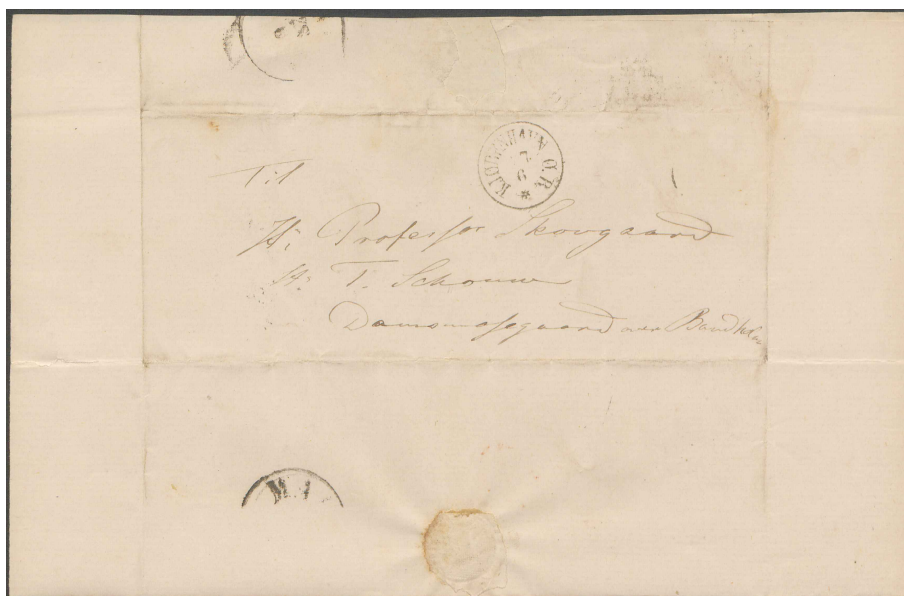 KJØBENHAVN O.R.
7
6
Til
Hr. Professor Skovgaard
Hr. T. Schouw
Damsmosegaard ved
MA